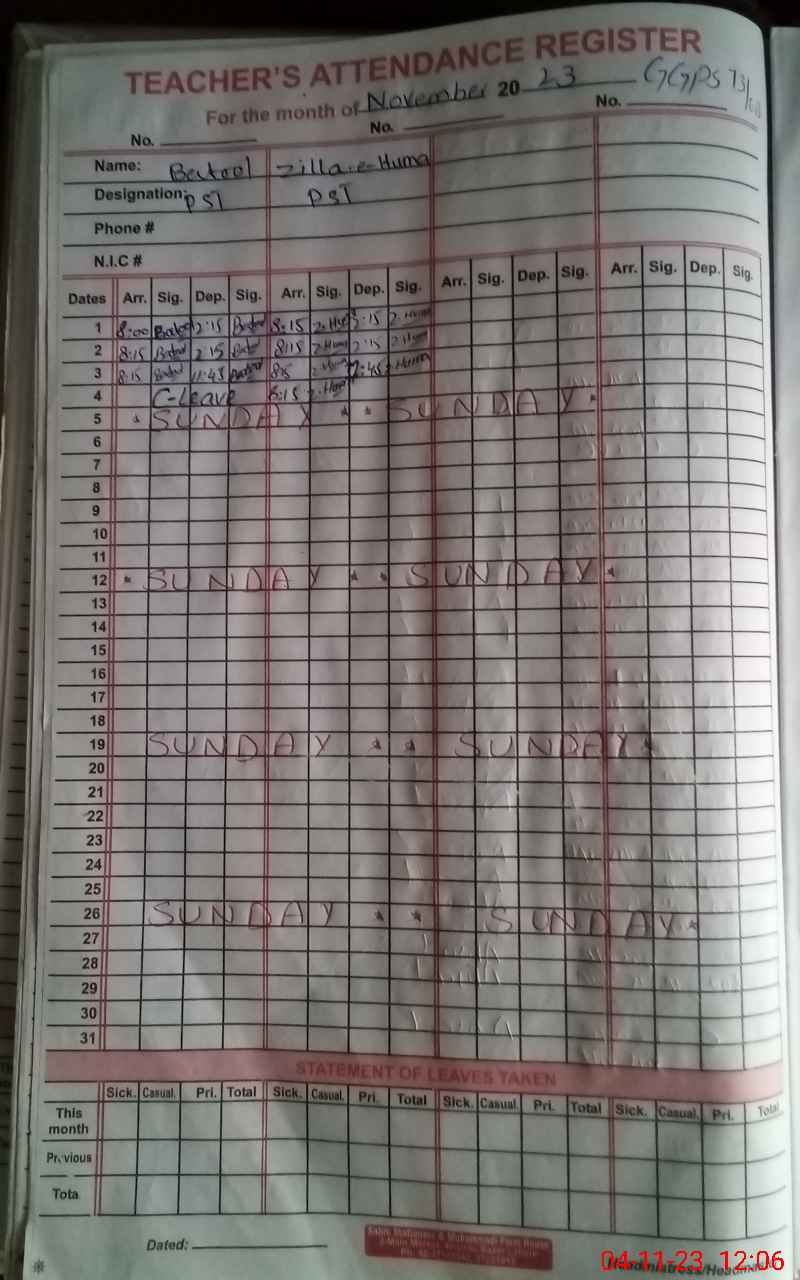 TEACHER'S ATTENDANCE REGISTER
For the month of November 20 23 GGPS 73/
No. No. No.
Name: Batool Zilla-e-Huma
Designation: PST PST
Phone #
N.I.C #
Dates Arr. Sig. Dep. Sig. Arr. Sig. Dep. Sig. Arr. Sig. Dep. Sig. Arr. Sig. Dep. Sig.
1 8:00 Batool 2:15 Batool 8:15 Z-Huma 2:15 Z-Huma
2 8:15 Batool 2:15 Batool 8:15 Z-Huma 2:15 Z-Huma
3 8:15 Batool 11:45 Batool 8:15 Z-Huma 12:45 Z-Huma
4 C-Leave 8:15 Z-Huma
5 * SUNDAY * * SUNDAY *
6
7
8
9
10
11
12 * SUNDAY * * SUNDAY *
13
14
15
16
17
18
19 SUNDAY * * SUNDAY *
20
21
22
23
24
25
26 SUNDAY * * SUNDAY *
27
28
29
30
31
STATEMENT OF LEAVES TAKEN
Sick. Casual. Pri. Total Sick. Casual. Pri. Total Sick. Casual. Pri. Total Sick. Casual. Pri. Total
This month
Previous
Tota
Dated:
Headmistress/Headm
04-11-23 12:06